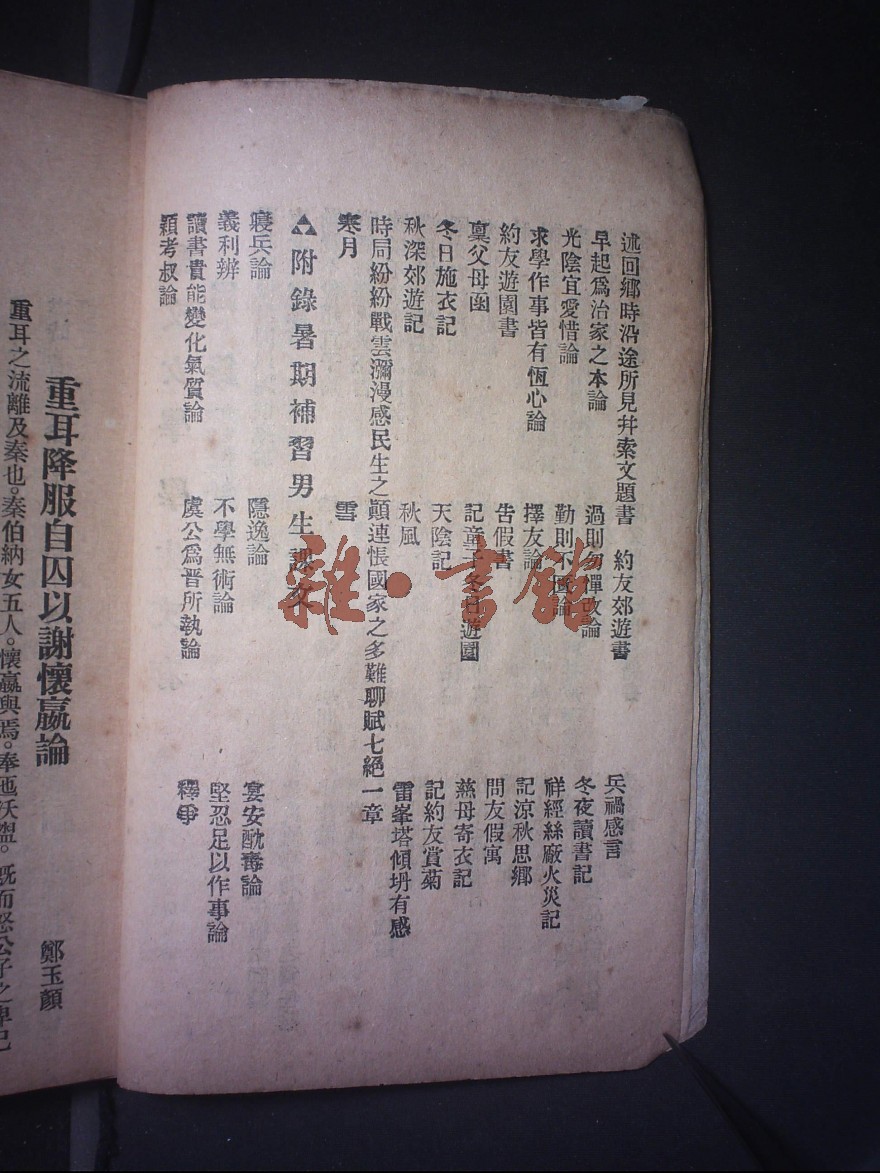 述回鄉時沿途所見幷索文題書　約友郊遊書　兵禍感言
早起爲治家之本論　過則勿憚改論　冬夜讀書記
光陰宜愛惜論　勤則不匱論　祥經絲廠火災記
求學作事皆有恆心論　擇友論　記涼秋思鄉
約友遊園書　告假書　問友假寓
稟父母函　記童子冬日遊園　慈母寄衣記
冬日施衣記　天陰記　記約友賞菊
秋深郊遊記　秋風　雷峯塔傾坍有感
時局紛紛戰雲瀰漫感民生之顚連悵國家之多難聊賦七絕一章
寒月　雪
附錄暑期補習男生課文
寢兵論　隱逸論　宴安酖毒論
義利辨　不學無術論　堅忍足以作事論
讀書貴能變化氣質論　虞公爲晉所執論　釋爭
潁考叔論
重耳降服自囚以謝懷嬴論　鄭玉顏
重耳之流離及秦也。秦伯納女五人。懷嬴與焉。奉匜沃盥。既而怒公子之卑己
雜·書館